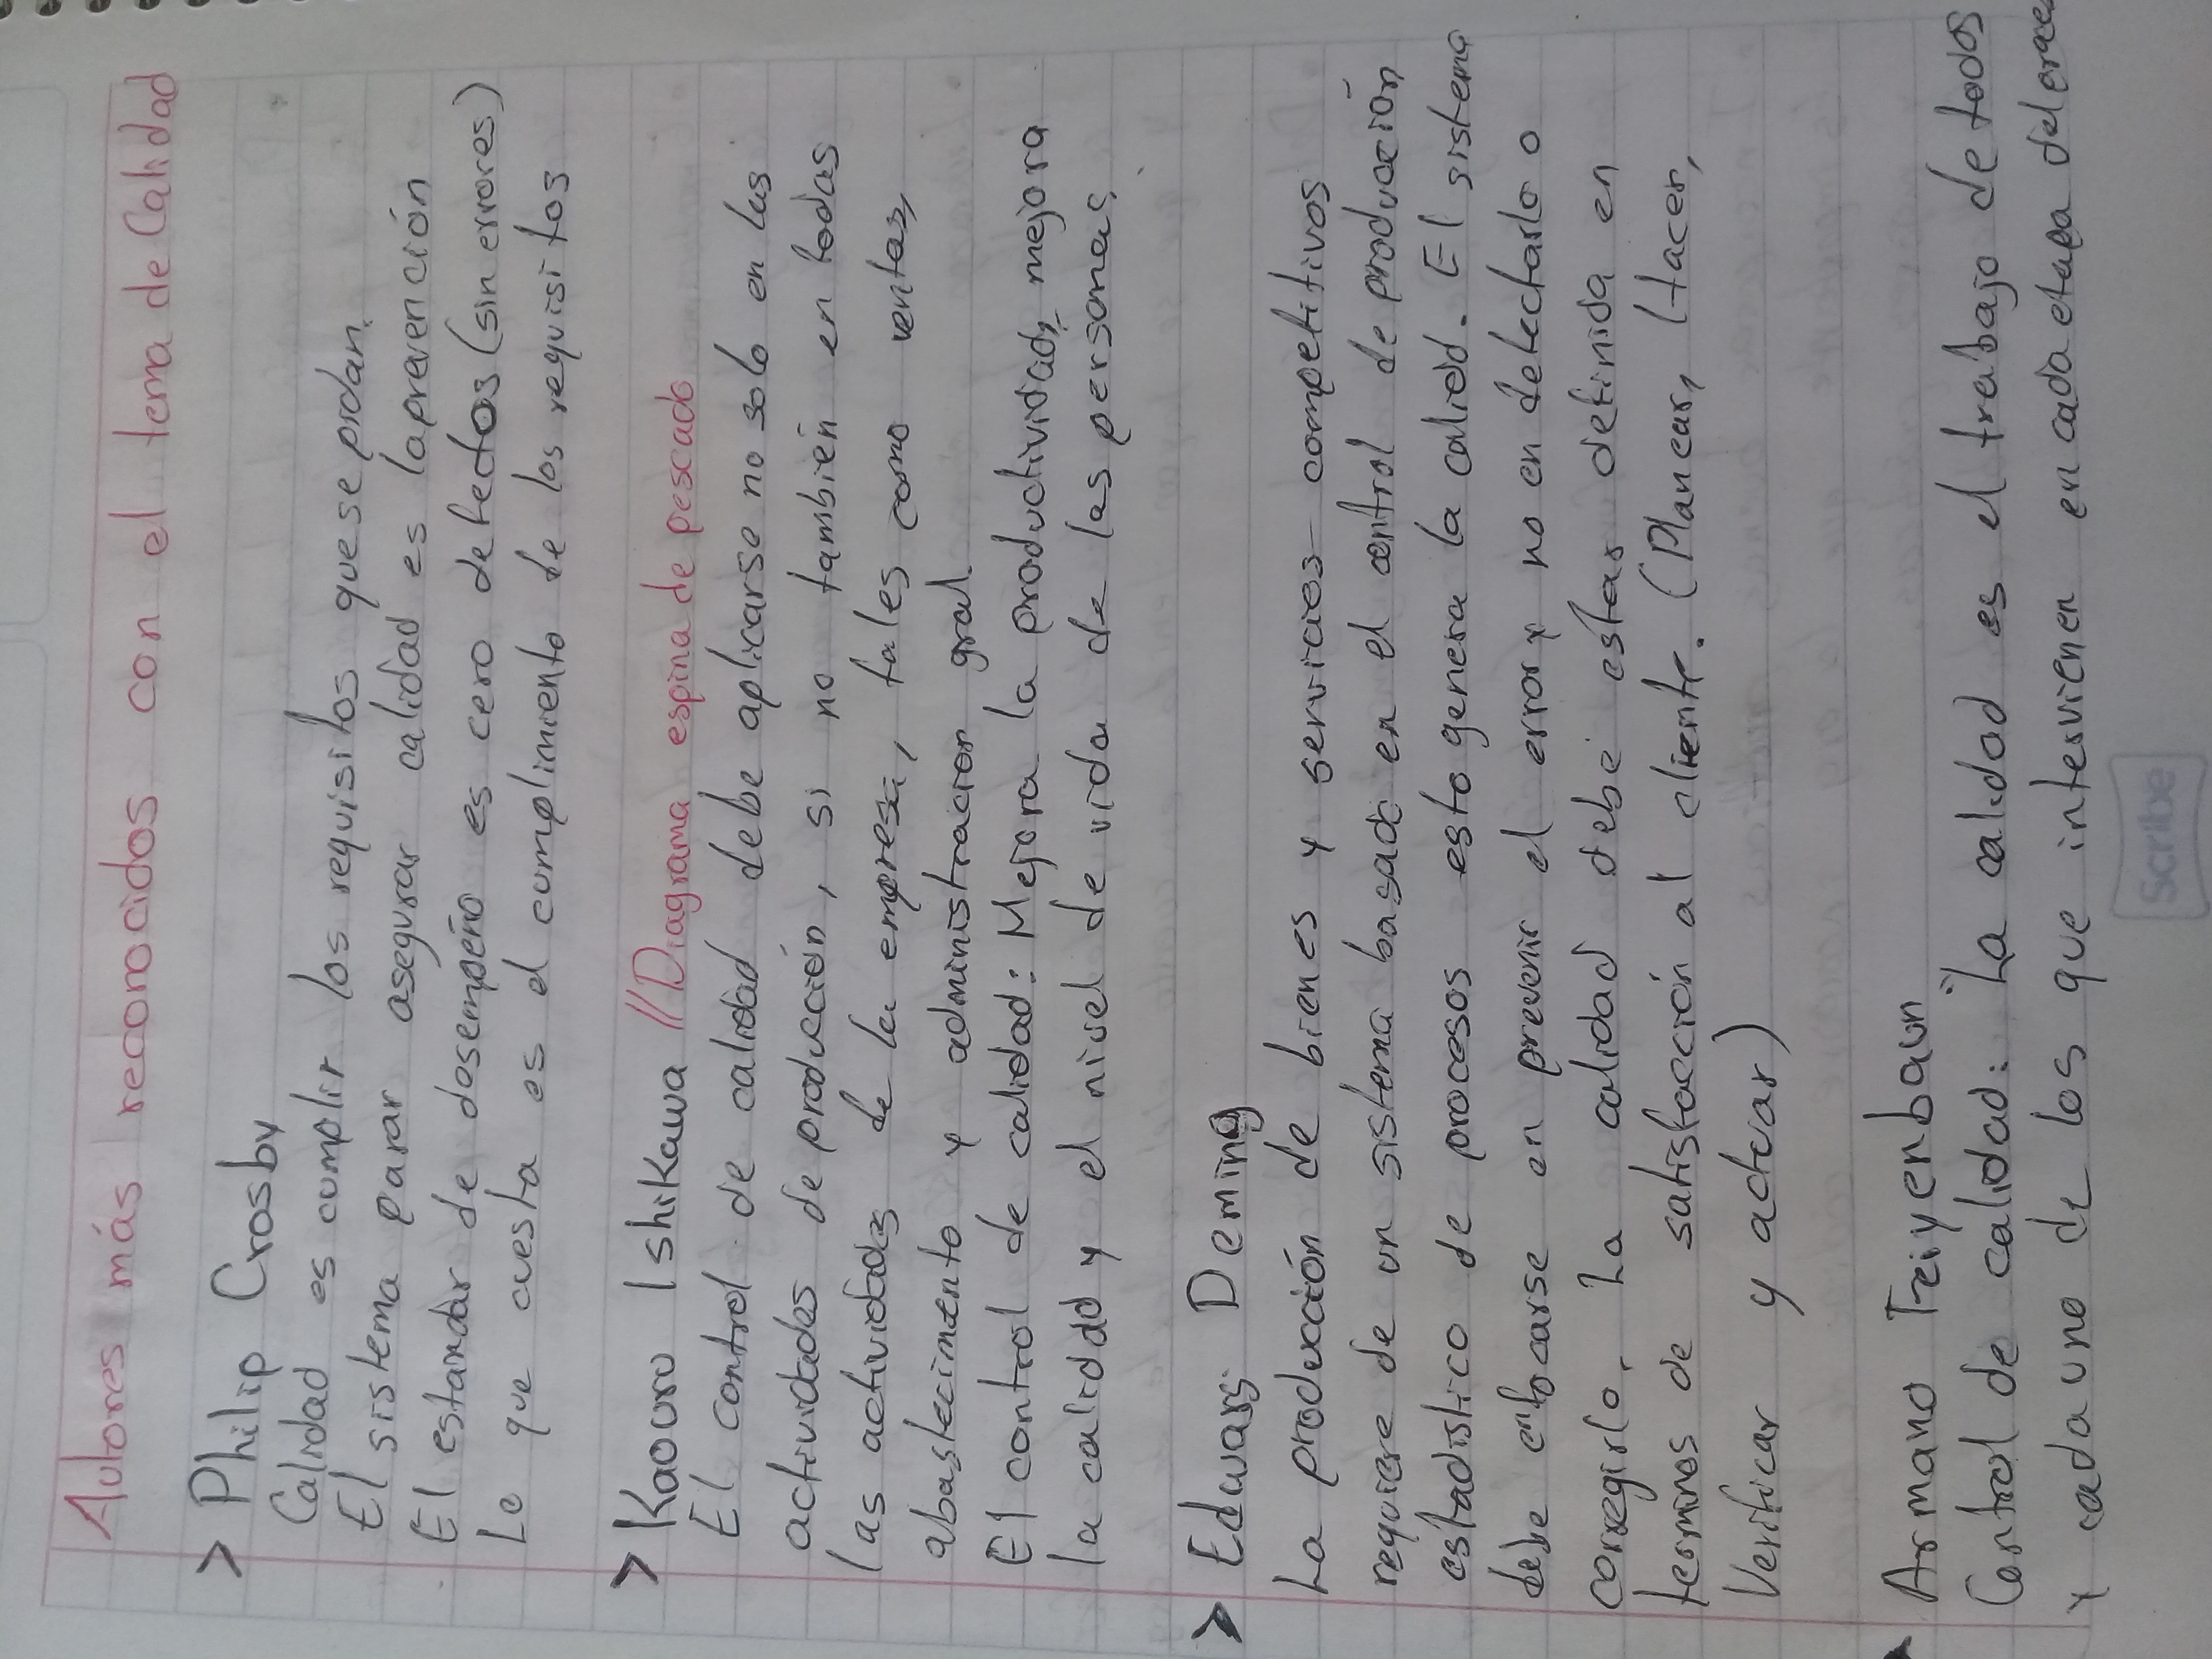 Autores más reconocidos con el tema de Calidad
> Philip Crosby
Calidad es cumplir los requisitos que se pidan.
El sistema parar asegurar calidad es la prevención
El estandar de desempeño es cero defectos (sin errores)
Lo que cuesta es el cumplimiento de los requisitos
> Kaouro Ishikawa // Diagrama espina de pescado
El control de calidad debe aplicarse no solo en las
actividades de producción, si no también en todas
las actividades de la empresa, tales como ventas,
abastecimento y administracion gral.
El control de calidad: Mejora la productividad, mejora
la calidad y el nivel de vida de las personas
> Edwars Deming
La producción de bienes y servicios competitivos
requiere de un sistema basado en el control de producción
estadístico de procesos esto genera la calidad. El sistema
debe enfocarse en prevenir el error y no en detectarlo o
corregirlo, La calidad debe estar definida en
terminos de satisfacción al cliente. (Planear, Hacer,
Verificar y actuar)
Armand Feiyenbaun
Control de calidad: "La calidad es el trabajo de todos
y cada uno de los que intervienen en cada etapa del
Scribe